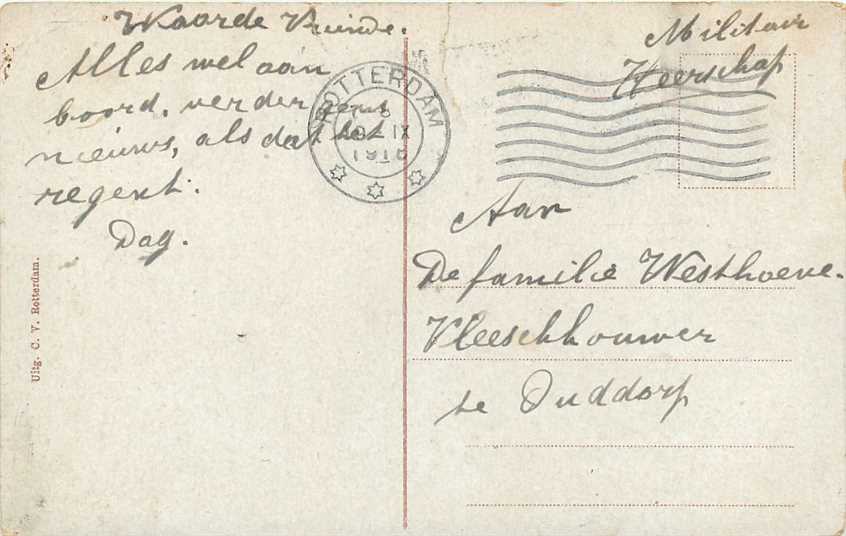 Waarde Vriende.
Alles wel aan
boord, verder geen
nieuws, als dat het
regent.
Dag.
Uitg. C. V. Rotterdam.
ROTTERDAM
IX
Militair
Heerschap
Aan
De familie Westhoeve.
Vleeschhouwer
te Ouddorp